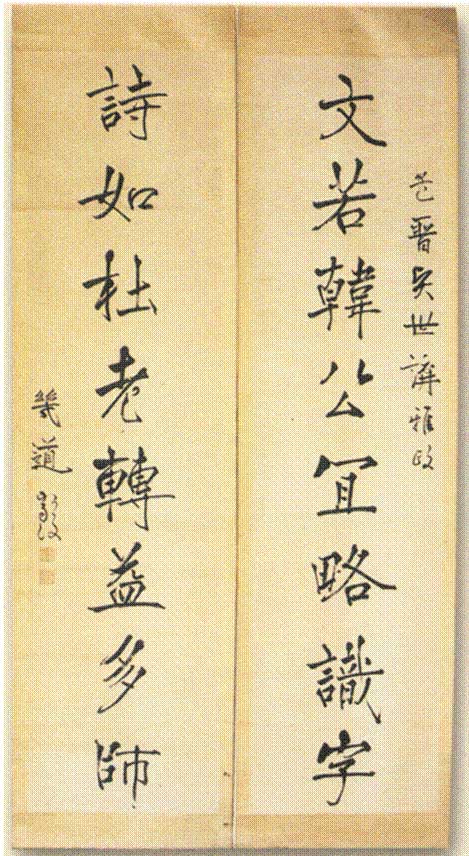 晉吳世講雅政
文若韓公宜略識字
詩如杜老轉益多師
幾道嚴復